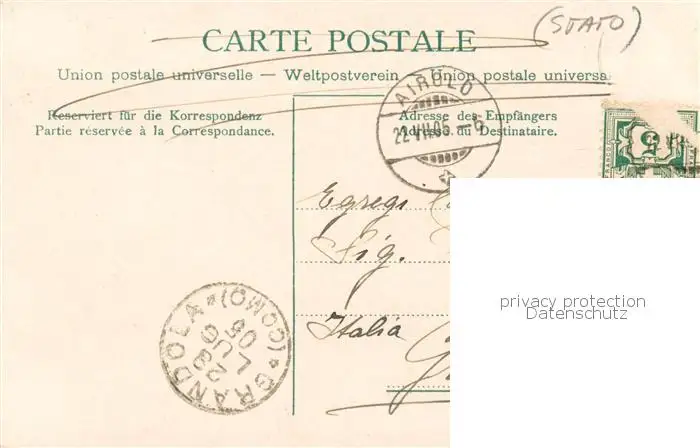 (STATO)
CARTE POSTALE
Union postale universelle — Weltpostverein — Union postale universa
Reserviert für die Korrespondenz
Partie réservée à la Correspondance.
Adresse des Empfängers
Adresse du Destinataire.
AIROLO
22.VII.05.-6
5
Egregi
Sig.
Italia
GRANDOLA * (COMO) *
23
LUG
05
privacy protection
Datenschutz